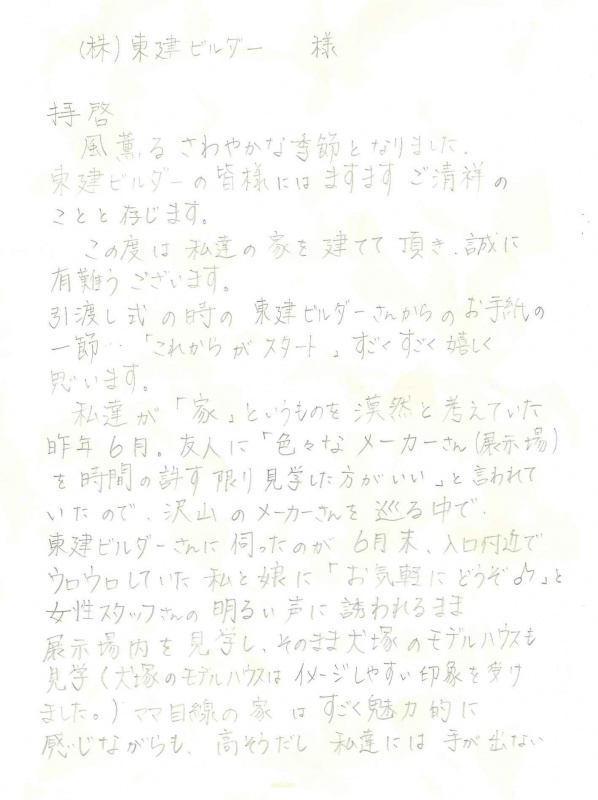 (株)東建ビルダー　様
拝啓
風薫るさわやかな季節となりました。
東建ビルダーの皆様にはますますご清祥の
ことと存じます。
この度は私達の家を建てて頂き、誠に
有難うございます。
引渡し式の時の東建ビルダーさんからのお手紙の
一節…「これからがスタート」すごくすごく嬉しく
思います。
私達が「家」というものを漠然と考えていた
昨年6月。友人に「色々なメーカーさん(展示場)
を時間の許す限り見学した方がいい」と言われて
いたので、沢山のメーカーさんを巡る中で、
東建ビルダーさんに伺ったのが6月末、入口付近で
ウロウロしていた私と娘に「お気軽にどうぞ♪」と
女性スタッフさんの明るい声に誘われるまま
展示場内を見学し、そのまま犬塚のモデルハウスも
見学(犬塚のモデルハウスはイメージしやすい印象を受け
ました。)ママ目線の家はすごく魅力的に
感じながらも、高そうだし私達には手が出ない